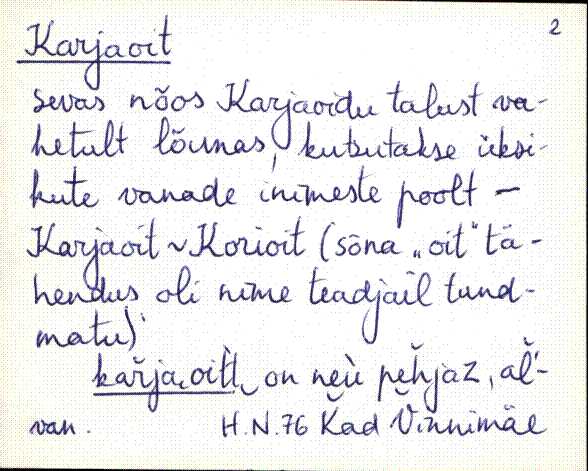 2
Karjaoit
sevas nõos Karjaoidu talust va-
hetult lõunas, kutsutakse üksi-
kute vanade inimeste poolt –
Karjaoit ~ Korioit (sõna „oit" tä-
hendus oli nime teadjail tund-
matu)
karja, oitl on neu pehjaz, al'-
van. H.N. 76 Kad Vinnimäe